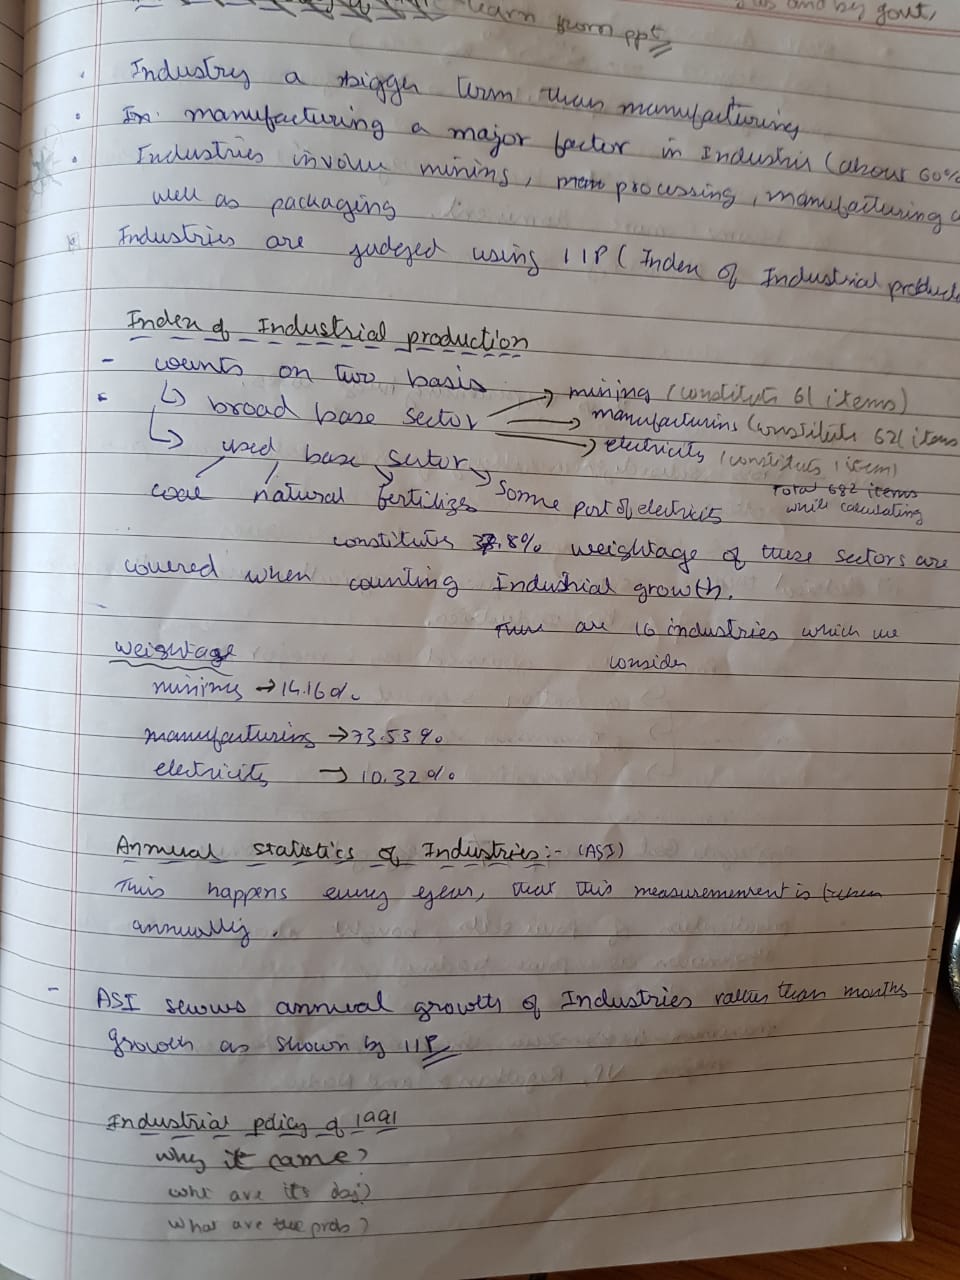 learn from ppt
and by govt,
Industry a bigger term than manufacturing
In manufacturing a major factor in Industris (about 60%
Industries involve mining, processing, manufacturing
well as packaging
Industries are judged using IIP (Index of Industrial product
Index of Industrial production
- counts on two basis
↳ broad base sector → mining (constitute 61 items)
→ manufacturing (constitute 621 items
→ electricity (constitutes 1 item)
↳ used base sector
Total 682 items
while calculating
coal natural fertilizer Some part of electricity
constitutes 37.8% weightage of these sectors are
covered when counting Industrial growth.
There are 16 industries which we
consider
Weightage
mining → 14.16%
manufacturing → 73.53%
electricity → 10.32%
Annual statistics of Industries:- (ASI)
This happens every year, that this measurement is taken
annually.
- ASI shows annual growth of Industries rather than months
growth as shown by IIP
Industrial policy of 1991
why it came?
what are the prob?